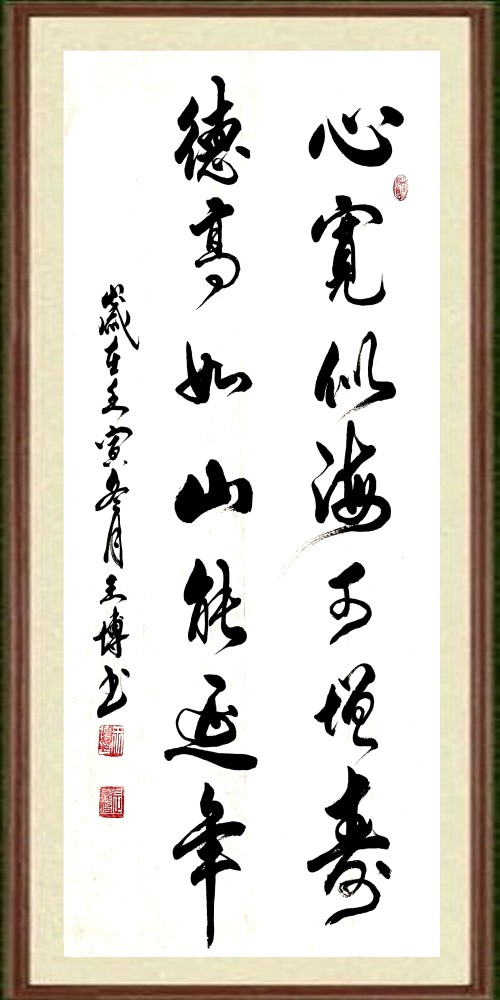 心寬似海可增壽
德高如山能延年
歲在壬寅冬月王博书